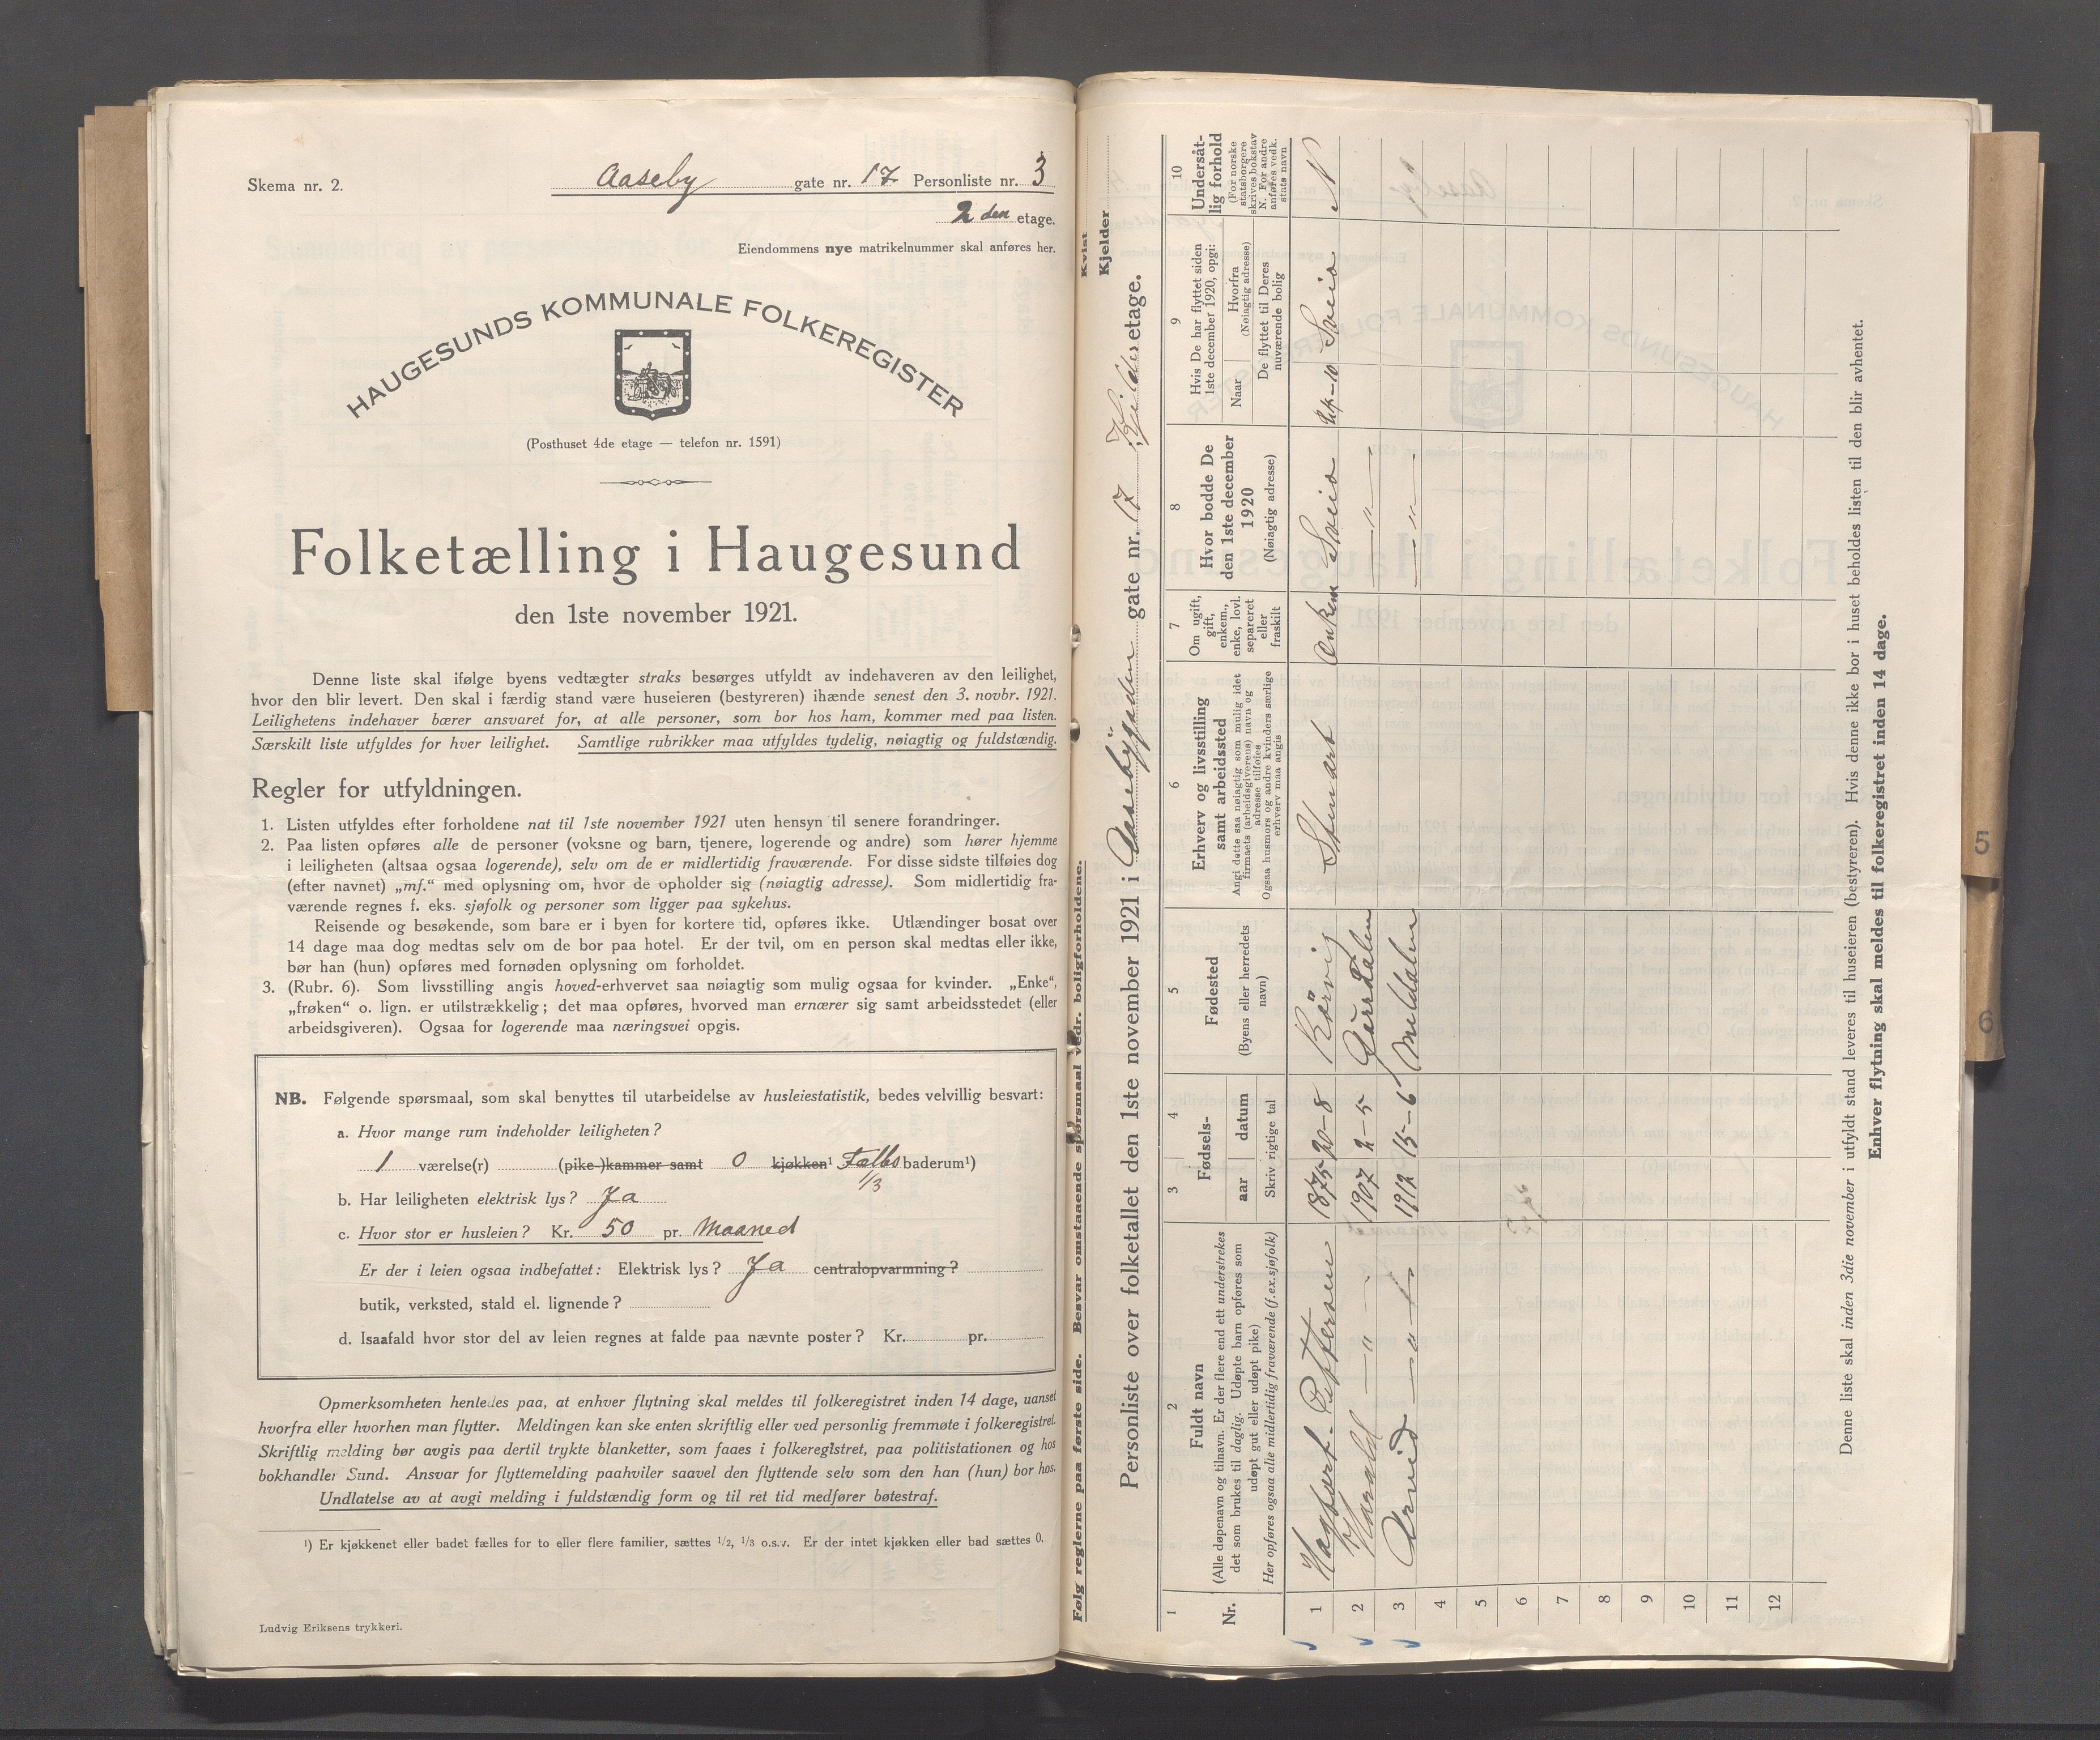 Skema nr. 2.
Aaseby gate nr. 17 Personliste nr. 3
2 den etage.
Eiendommens nye matrikelnummer skal anføres her.
HAUGESUNDS KOMMUNALE FOLKEREGISTER
(Posthuset 4de etage — telefon nr. 1591)
Folketælling i Haugesund
den 1ste november 1921.
Denne liste skal ifølge byens vedtægter straks besørges utfyldt av indehaveren av den leilighet,
hvor den blir levert. Den skal i færdig stand være huseieren (bestyreren) ihænde senest den 3. novbr. 1921.
Leilighetens indehaver bærer ansvaret for, at alle personer, som bor hos ham, kommer med paa listen.
Særskilt liste utfyldes for hver leilighet. Samtlige rubrikker maa utfyldes tydelig, nøiagtig og fuldstændig.
Regler for utfyldningen.
1. Listen utfyldes efter forholdene nat til 1ste november 1921 uten hensyn til senere forandringer.
2. Paa listen opføres alle de personer (voksne og barn, tjenere, logerende og andre) som hører hjemme
i leiligheten (altsaa ogsaa logerende), selv om de er midlertidig fraværende. For disse sidste tilføies dog
(efter navnet) „mf.“ med oplysning om, hvor de opholder sig (nøiagtig adresse). Som midlertidig fra-
værende regnes f. eks. sjøfolk og personer som ligger paa sykehus.
Reisende og besøkende, som bare er i byen for kortere tid, opføres ikke. Utlændinger bosat over
14 dage maa dog medtas selv om de bor paa hotel. Er der tvil, om en person skal medtas eller ikke,
bør han (hun) opføres med fornøden oplysning om forholdet.
3. (Rubr. 6). Som livsstilling angis hoved-erhvervet saa nøiagtig som mulig ogsaa for kvinder. „Enke“,
„frøken“ o. lign. er utilstrækkelig; det maa opføres, hvorved man ernærer sig samt arbeidsstedet (eller
arbeidsgiveren). Ogsaa for logerende maa næringsvei opgis.
NB. Følgende spørsmaal, som skal benyttes til utarbeidelse av husleiestatistik, bedes velvillig besvart:
a. Hvor mange rum indeholder leiligheten?
1 værelse(r) (pike-)kammer samt 0 kjøkken¹ Fælles baderum¹)
1/3
b. Har leiligheten elektrisk lys? Ja
c. Hvor stor er husleien? Kr. 50 pr. Maaned
Er der i leien ogsaa indbefattet: Elektrisk lys? Ja centralopvarmning?
butik, verksted, stald el. lignende?
d. Isaafald hvor stor del av leien regnes at falde paa nævnte poster? Kr. pr.
Opmerksomheten henledes paa, at enhver flytning skal meldes til folkeregistret inden 14 dage, uanset
hvorfra eller hvorhen man flytter. Meldingen kan ske enten skriftlig eller ved personlig fremmøte i folkeregistret.
Skriftlig melding bør avgis paa dertil trykte blanketter, som faaes i folkeregistret, paa politistationen og hos
bokhandler Sund. Ansvar for flyttemelding paahviler saavel den flyttende selv som den han (hun) bor hos.
Undlatelse av at avgi melding i fuldstændig form og til ret tid medfører bøtestraf.
¹) Er kjøkkenet eller badet fælles for to eller flere familier, sættes 1/2, 1/3 o.s.v. Er der intet kjøkken eller bad sættes 0.
Ludvig Eriksens trykkeri.
Følg reglerne paa første side. Besvar omstaaende spørsmaal vedr. boligforholdene. Kvist
Kjelder
Personliste over folketallet den 1ste november 1921 i Aasebygaden gate nr. 17 Kjelder etage.
1 2 3 4 5 6 7 8 9 10
Nr.
Fuldt navn
(Alle døpenavn og tilnavn. Er der flere end ett understrekes
det som brukes til daglig. Udøpte barn opføres som
udøpt gut eller udøpt pike)
Her opføres ogsaa alle midlertidig fraværende (f.ex. sjøfolk)
Fødsels-
aar datum
Skriv rigtige tal
Fødested
(Byens eller herredets
navn)
Erhverv og livsstilling
samt arbeidssted
Angi dette saa nøiagtig som mulig idet
firmaets (arbeidsgiverens) navn og
adresse tilføies
Ogsaa husmors og andre kvinders særlige
erhverv maa angis
Om ugift,
gift,
enkem.,
enke, lovl.
separeret
eller
fraskilt
Hvor bodde De
den 1ste december
1920
(Nøiagtig adresse)
Hvis De har flyttet siden
1ste december 1920, opgi:
Naar
Hvorfra
(Nøiagtig adresse)
De flyttet til Deres
nuværende bolig
Undersåt-
lig forhold
(For norske
statsborgere
skrives bokstav
N. For andre
anføres vedk.
stats navn
1 Hagbart Pettersen 1875 20-8 Rörvig Stuuart Enkem Sveio Sveio N
2 Harald — " — 1907 2-5 — " —
3 Arvid — " — 1912 15-6 Meldalen — " —
4
5
6
7
8
9
10
11
12
Denne liste skal inden 3die november i utfyldt stand leveres til huseieren (bestyreren). Hvis denne ikke bor i huset beholdes listen til den blir avhentet.
Enhver flytning skal meldes til folkeregistret inden 14 dage.
5
6